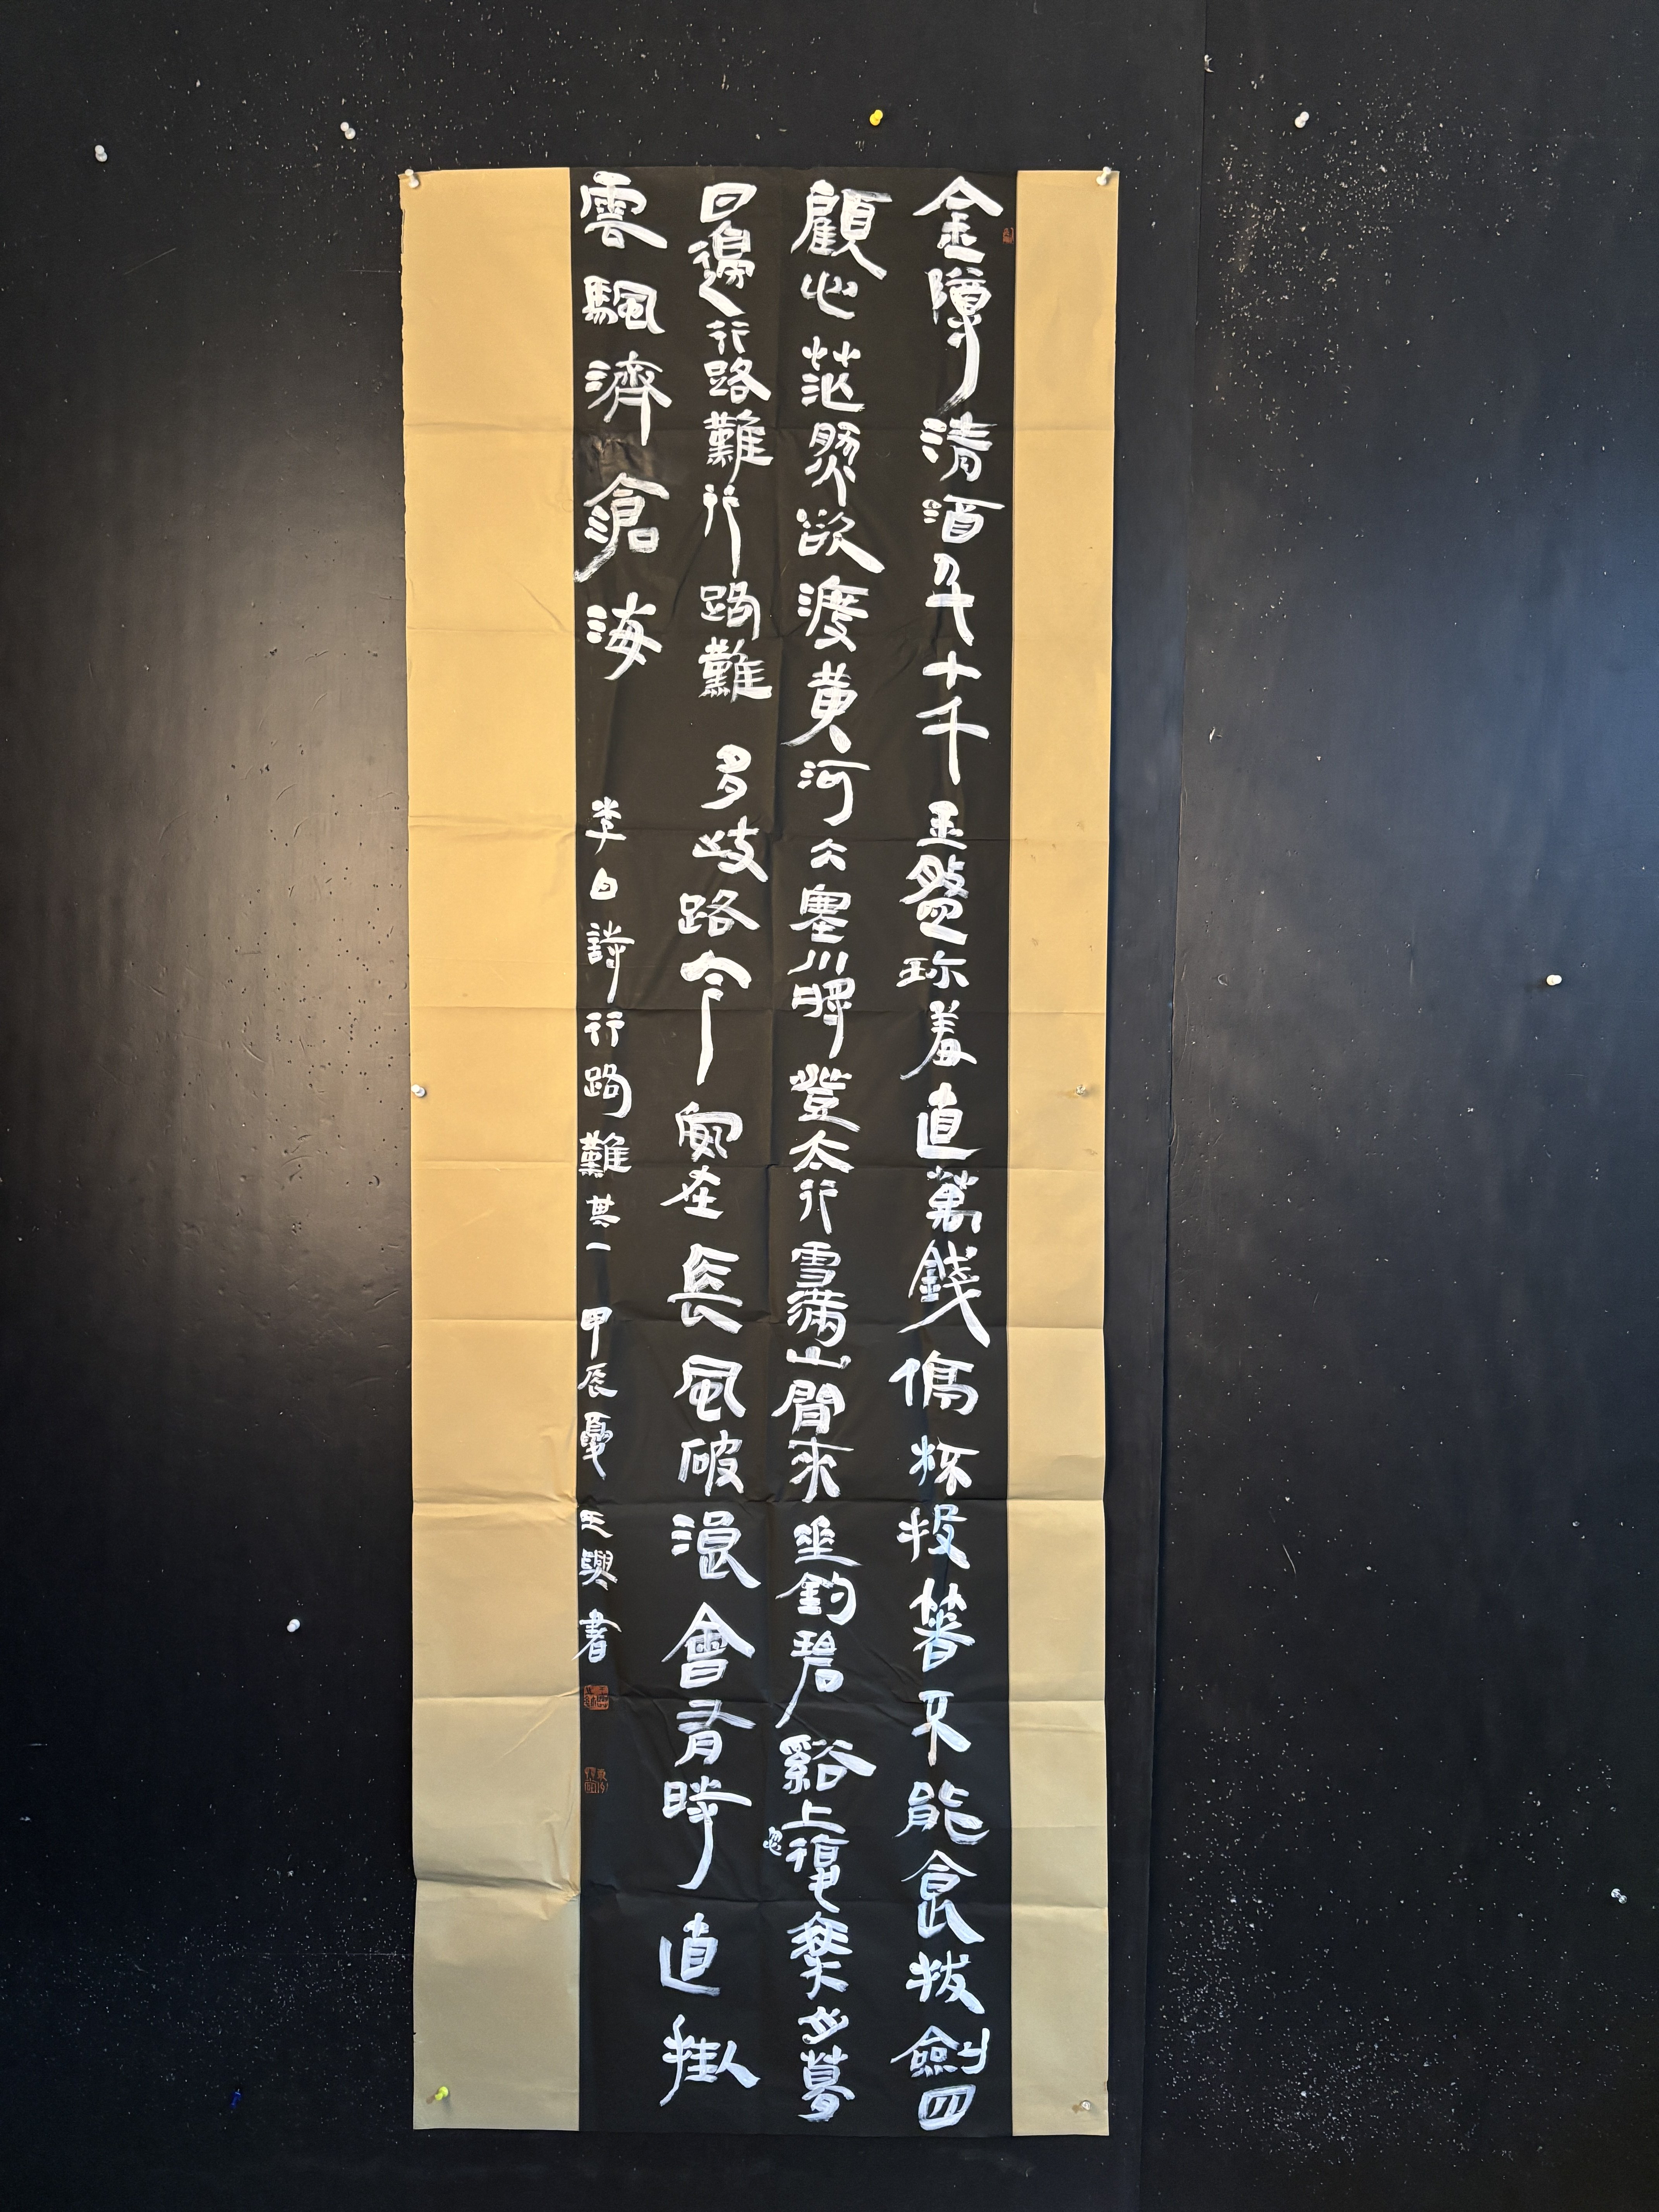 金樽清酒斗十千玉盤珍羞直萬錢停杯投箸不能食拔劍四
顧心茫然欲渡黃河冰塞川將登太行雪滿山閒來坐釣碧谿上忽復乘舟夢
日邊行路難行路難多歧路今安在長風破浪會有時直掛
雲颿濟滄海
李白詩行路難其一 甲辰夏 王興書